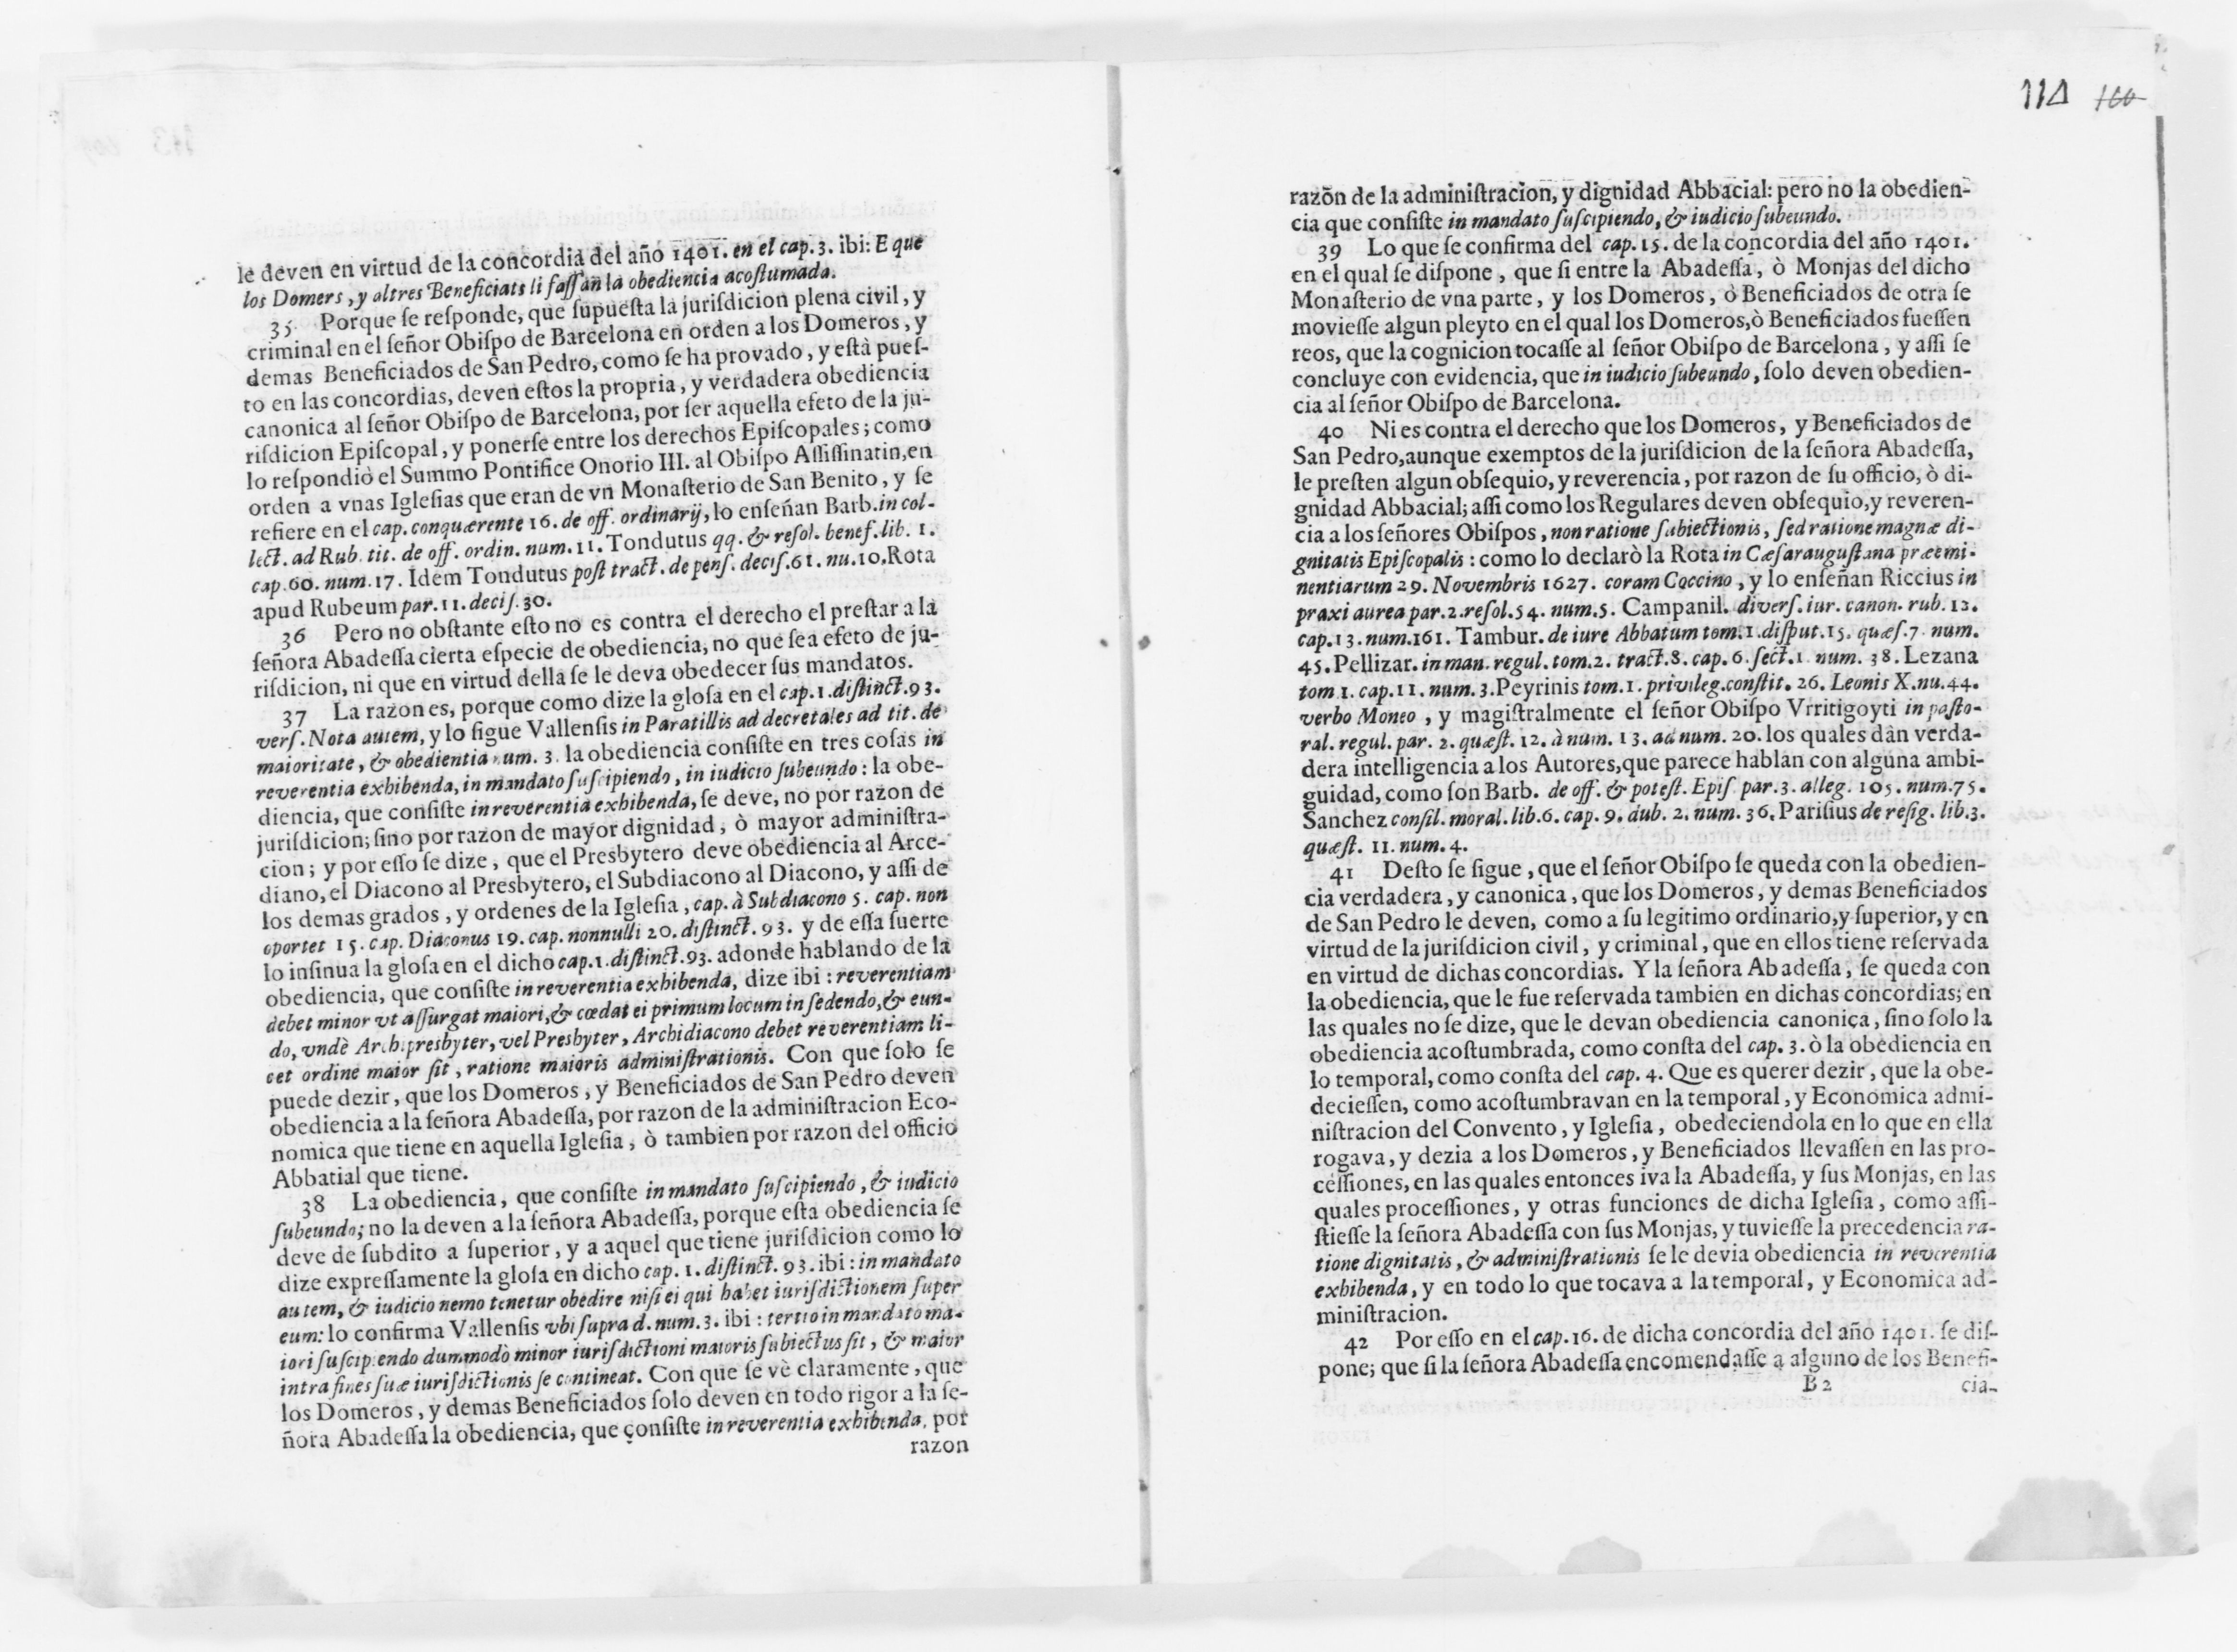 le deven en virtud de la concordia del año 1401. en el cap. 3. ibi: E que
los Domers, y altres Beneficiats li faſſan la obediencia acoſtumada.
35 Porque ſe reſponde, que ſupueſta la juriſdicion plena civil, y
criminal en el ſeñor Obiſpo de Barcelona en orden a los Domeros, y
demas Beneficiados de San Pedro, como ſe ha provado, y eſtà pueſ-
to en las concordias, deven eſtos la propria, y verdadera obediencia
canonica al ſeñor Obiſpo de Barcelona, por ſer aquella efeto de la ju-
riſdicion Epiſcopal, y ponerſe entre los derechos Epiſcopales; como
lo reſpondiò el Summo Pontifice Onorio III. al Obiſpo Aſſiſſinatin, en
orden a vnas Igleſias que eran de vn Monaſterio de San Benito, y ſe
refiere en el cap. conquærente 16. de off. ordinarij, lo enſeñan Barb. in col-
lect. ad Rub. tit. de off. ordin. num. 11. Tondutus qq. & reſol. benef. lib. 1.
cap. 60. num. 17. Idem Tondutus poſt tract. de penſ. deciſ. 61. nu. 10. Rota
apud Rubeum par. 11. deciſ. 30.
36 Pero no obſtante eſto no es contra el derecho el preſtar a la
ſeñora Abadeſſa cierta eſpecie de obediencia, no que ſea efeto de ju-
riſdicion, ni que en virtud della ſe le deva obedecer ſus mandatos.
37 La razon es, porque como dize la gloſa en el cap. 1. diſtinct. 93.
verſ. Nota autem, y lo ſigue Vallenſis in Paratillis ad decretales ad tit. de
maioritate, & obedientia num. 3. la obediencia conſiſte en tres coſas in
reverentia exhibenda, in mandato ſuſcipiendo, in iudicio ſubeundo: la obe-
diencia, que conſiſte in reverentia exhibenda, ſe deve, no por razon de
juriſdicion; ſino por razon de mayor dignidad, ò mayor adminiſtra-
cion; y por eſſo ſe dize, que el Presbytero deve obediencia al Arce-
diano, el Diacono al Presbytero, el Subdiacono al Diacono, y aſſi de
los demas grados, y ordenes de la Igleſia, cap. à Subdiacono 5. cap. non
oportet 15. cap. Diaconus 19. cap. nonnulli 20. diſtinct. 93. y de eſſa ſuerte
lo inſinua la gloſa en el dicho cap. 1. diſtinct. 93. adonde hablando de la
obediencia, que conſiſte in reverentia exhibenda, dize ibi: reverentiam
debet minor vt aſſurgat maiori, & cœdat ei primum locum in ſedendo, & eun-
do, vndè Archipresbyter, vel Presbyter, Archidiacono debet reverentiam li-
cet ordine maior ſit, ratione maioris adminiſtrationis. Con que ſolo ſe
puede dezir, que los Domeros, y Beneficiados de San Pedro deven
obediencia a la ſeñora Abadeſſa, por razon de la adminiſtracion Eco-
nomica que tiene en aquella Igleſia, ò tambien por razon del officio
Abbatial que tiene.
38 La obediencia, que conſiſte in mandato ſuſcipiendo, & iudicio
ſubeundo; no la deven a la ſeñora Abadeſſa, porque eſta obediencia ſe
deve de ſubdito a ſuperior, y a aquel que tiene juriſdicion como lo
dize expreſſamente la gloſa en dicho cap. 1. diſtinct. 93. ibi: in mandato
autem, & iudicio nemo tenetur obedire niſi ei qui habet iuriſdictionem ſuper
eum: lo confirma Vallenſis vbi ſupra d. num. 3. ibi: tertio in mandato ma-
iori ſuſcipiendo dummodò minor iuriſdictioni maioris ſubiectus ſit, & maior
intra fines ſuæ iuriſdictionis ſe contineat. Con que ſe vè claramente, que
los Domeros, y demas Beneficiados ſolo deven en todo rigor a la ſe-
ñora Abadeſſa la obediencia, que conſiſte in reverentia exhibenda, por
razon
114 160
razõn de la adminiſtracion, y dignidad Abbacial: pero no la obedien-
cia que conſiſte in mandato ſuſcipiendo, & iudicio ſubeundo.
39 Lo que ſe confirma del cap. 15. de la concordia del año 1401.
en el qual ſe diſpone, que ſi entre la Abadeſſa, ò Monjas del dicho
Monaſterio de vna parte, y los Domeros, ò Beneficiados de otra ſe
movieſſe algun pleyto en el qual los Domeros, ò Beneficiados fueſſen
reos, que la cognicion tocaſſe al ſeñor Obiſpo de Barcelona, y aſſi ſe
concluye con evidencia, que in iudicio ſubeundo, ſolo deven obedien-
cia al ſeñor Obiſpo de Barcelona.
40 Ni es contra el derecho que los Domeros, y Beneficiados de
San Pedro, aunque exemptos de la juriſdicion de la ſeñora Abadeſſa,
le preſten algun obſequio, y reverencia, por razon de ſu officio, ò di-
gnidad Abbacial; aſſi como los Regulares deven obſequio, y reveren-
cia a los ſeñores Obiſpos, non ratione ſubiectionis, ſed ratione magnæ di-
gnitatis Epiſcopalis: como lo declarò la Rota in Cæſarauguſtana præemi-
nentiarum 29. Novembris 1627. coram Coccino, y lo enſeñan Riccius in
praxi aurea par. 2. reſol. 54. num. 5. Campanil. diverſ. iur. canon. rub. 12.
cap. 13. num. 161. Tambur. de iure Abbatum tom. 1. diſput. 15. quæſ. 7. num.
45. Pellizar. in man. regul. tom. 2. tract. 8. cap. 6. ſect. 1. num. 38. Lezana
tom. 1. cap. 11. num. 3. Peyrinis tom. 1. privileg. conſtit. 26. Leonis X. nu. 44.
verbo Moneo, y magiſtralmente el ſeñor Obiſpo Vrritigoyti in paſto-
ral. regul. par. 2. quæſt. 12. à num. 13. ad num. 20. los quales dàn verda-
dera intelligencia a los Autores, que parece hablan con alguna ambi-
guidad, como ſon Barb. de off. & poteſt. Epiſ. par. 3. alleg. 105. num. 75.
Sanchez conſil. moral. lib. 6. cap. 9. dub. 2. num. 36. Pariſius de reſig. lib. 3.
quæſt. 11. num. 4.
41 Deſto ſe ſigue, que el ſeñor Obiſpo ſe queda con la obedien-
cia verdadera, y canonica, que los Domeros, y demas Beneficiados
de San Pedro le deven, como a ſu legitimo ordinario, y ſuperior, y en
virtud de la juriſdicion civil, y criminal, que en ellos tiene reſervada
en virtud de dichas concordias. Y la ſeñora Abadeſſa, ſe queda con
la obediencia, que le fue reſervada tambien en dichas concordias; en
las quales no ſe dize, que le devan obediencia canonica, ſino ſolo la
obediencia acoſtumbrada, como conſta del cap. 3. ò la obediencia en
lo temporal, como conſta del cap. 4. Que es querer dezir, que la obe-
decieſſen, como acoſtumbravan en la temporal, y Economica admi-
niſtracion del Convento, y Igleſia, obedeciendola en lo que en ella
rogava, y dezia a los Domeros, y Beneficiados llevaſſen en las pro-
ceſſiones, en las quales entonces iva la Abadeſſa, y ſus Monjas, en las
quales proceſſiones, y otras funciones de dicha Igleſia, como aſſi-
ſtieſſe la ſeñora Abadeſſa con ſus Monjas, y tuvieſſe la precedencia ra-
tione dignitatis, & adminiſtrationis ſe le devia obediencia in reverentia
exhibenda, y en todo lo que tocava a la temporal, y Economica ad-
miniſtracion.
42 Por eſſo en el cap. 16. de dicha concordia del año 1401. ſe diſ-
pone; que ſi la ſeñora Abadeſſa encomendaſſe a alguno de los Benefi-
B 2 cia-